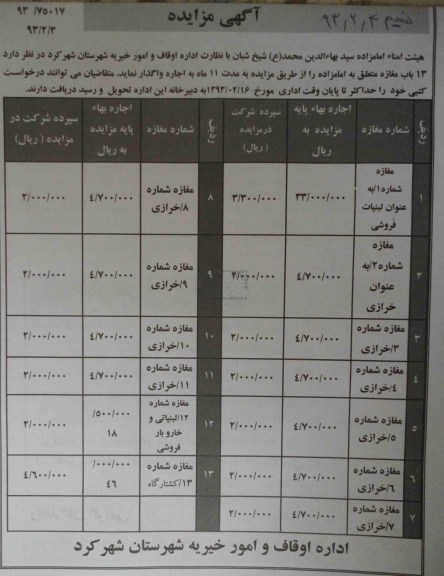 آگهی مزایده
۹۳/۷۵۰۱۷
۹۳/۲/۳
نسیم ۹۳,۲,۴
هیئت امناء امامزاده سید بهاءالدین محمد(ع) شیخ شبان با نظارت اداره اوقاف و امور خیریه شهرستان شهرکرد در نظر دارد
۱۳ باب مغازه متعلق به امامزاده را از طریق مزایده به مدت ۱۱ ماه به اجاره واگذار نماید. متقاضیان می توانند درخواست
کتبی خود را حداکثر تا پایان وقت اداری مورخ ۱۳۹۳/۰۲/۱۶ به دبیرخانه این اداره تحویل و رسید دریافت دارند.
ردیف شماره مغازه اجاره بهاء پایه مزایده به ریال سپرده شرکت درمزایده (ریال) ردیف شماره مغازه اجاره بهاء پایه مزایده به ریال سپرده شرکت در مزایده (ریال)
۱ مغازه شماره۱/به عنوان لبنیات فروشی ۳۳/۰۰۰/۰۰۰ ۳/۳۰۰/۰۰۰ ۸ مغازه شماره ۸/خرازی ۴/۷۰۰/۰۰۰ ۲/۰۰۰/۰۰۰
۲ مغازه شماره۲/به عنوان خرازی ۴/۷۰۰/۰۰۰ ۲/۰۰۰/۰۰۰ ۹ مغازه شماره ۹/خرازی ۴/۷۰۰/۰۰۰ ۲/۰۰۰/۰۰۰
۳ مغازه شماره ۳/خرازی ۴/۷۰۰/۰۰۰ ۲/۰۰۰/۰۰۰ ۱۰ مغازه شماره ۱۰/خرازی ۴/۷۰۰/۰۰۰ ۲/۰۰۰/۰۰۰
۴ مغازه شماره ۴/خرازی ۴/۷۰۰/۰۰۰ ۲/۰۰۰/۰۰۰ ۱۱ مغازه شماره ۱۱/خرازی ۴/۷۰۰/۰۰۰ ۲/۰۰۰/۰۰۰
۵ مغازه شماره ۵/خرازی ۴/۷۰۰/۰۰۰ ۲/۰۰۰/۰۰۰ ۱۲ مغازه شماره ۱۲/لبنیاتی و خاروبار فروشی /۵۰۰/۰۰۰ ۱۸ ۲/۰۰۰/۰۰۰
۶ مغازه شماره ۶/خرازی ۴/۷۰۰/۰۰۰ ۲/۰۰۰/۰۰۰ ۱۳ مغازه شماره ۱۳/کشتارگاه /۰۰۰/۰۰۰ ۴۶ ۴/۶۰۰/۰۰۰
۷ مغازه شماره ۷/خرازی ۴/۷۰۰/۰۰۰ ۲/۰۰۰/۰۰۰
اداره اوقاف و امور خیریه شهرستان شهرکرد